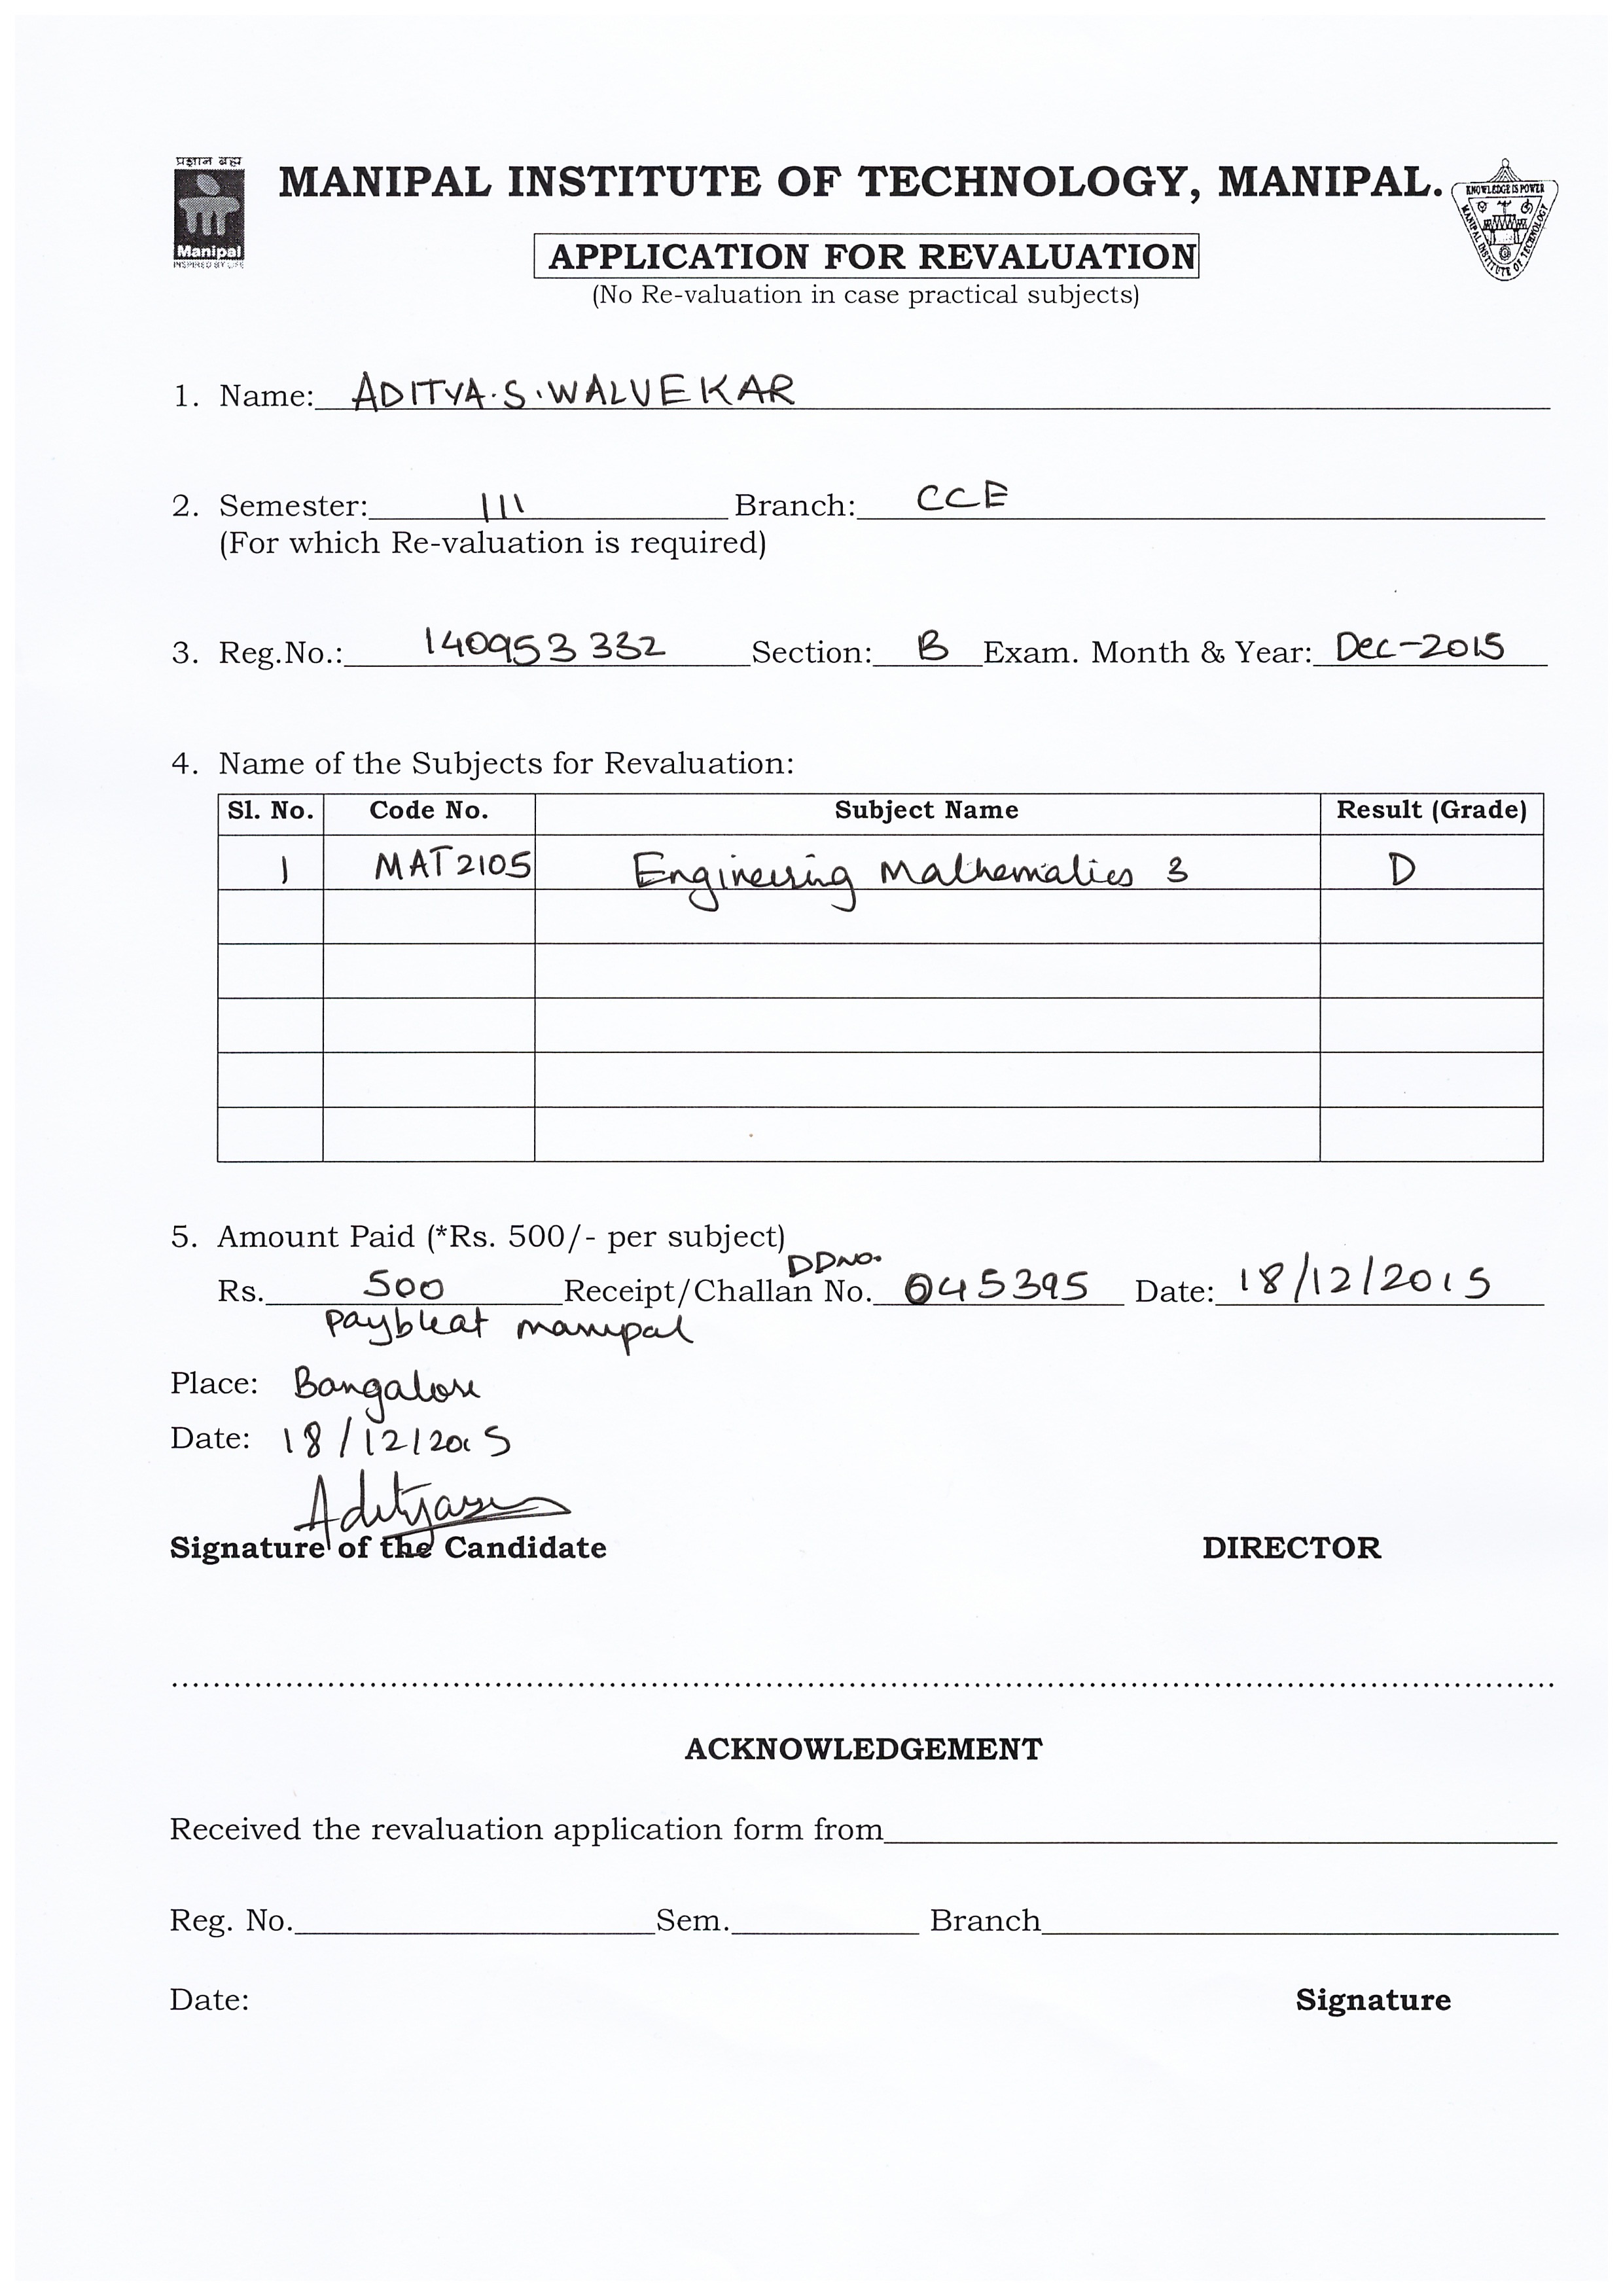 प्रज्ञान ब्रह्म
Manipal
INSPIRED BY LIFE
MANIPAL INSTITUTE OF TECHNOLOGY, MANIPAL.
KNOWLEDGE IS POWER
MANIPAL INSTITUTE OF TECHNOLOGY
APPLICATION FOR REVALUATION
(No Re-valuation in case practical subjects)
1. Name: ADITYA.S.WALVEKAR
2. Semester: III Branch: CCE
(For which Re-valuation is required)
3. Reg.No.: 140953332 Section: B Exam. Month & Year: Dec-2015
4. Name of the Subjects for Revaluation:
Sl. No. Code No. Subject Name Result (Grade)
1 MAT2105 Engineering Mathematics 3 D
5. Amount Paid (*Rs. 500/- per subject)
DDNO.
Rs. 500 Receipt/Challan No. 045395 Date: 18/12/2015
Paybleat manipal
Place: Bangalore
Date: 18/12/2015
Signature of the Candidate DIRECTOR
ACKNOWLEDGEMENT
Received the revaluation application form from
Reg. No. Sem. Branch
Date: Signature